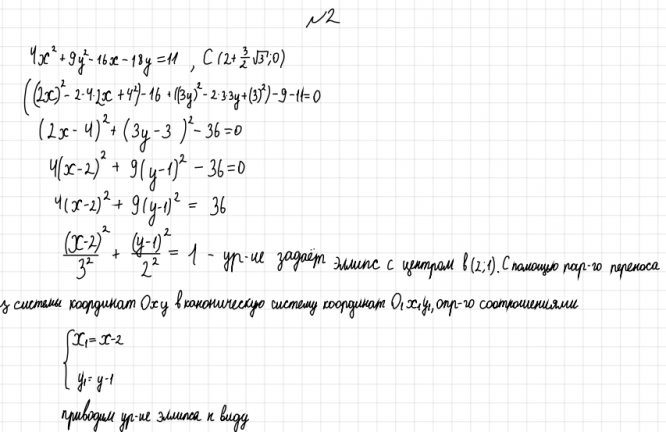 №2
4x² + 9y² - 16x - 18y = 11 , C (2 + 3/2 √3; 0)
((2x)² - 2·4·2x + 4²) - 16 + ((3y)² - 2·3·3y + (3)²) - 9 - 11 = 0
(2x - 4)² + (3y - 3)² - 36 = 0
4(x - 2)² + 9(y - 1)² - 36 = 0
4(x - 2)² + 9(y - 1)² = 36
(x-2)²/3² + (y-1)²/2² = 1 - ур-ие задаёт эллипс с центром в (2; 1). С помощью пар-го переноса
из системы координат Oxy в каноническую систему координат O₁x₁y₁, опр-го соотношениями
{ x₁ = x - 2
y₁ = y - 1
приводим ур-ие эллипса к виду